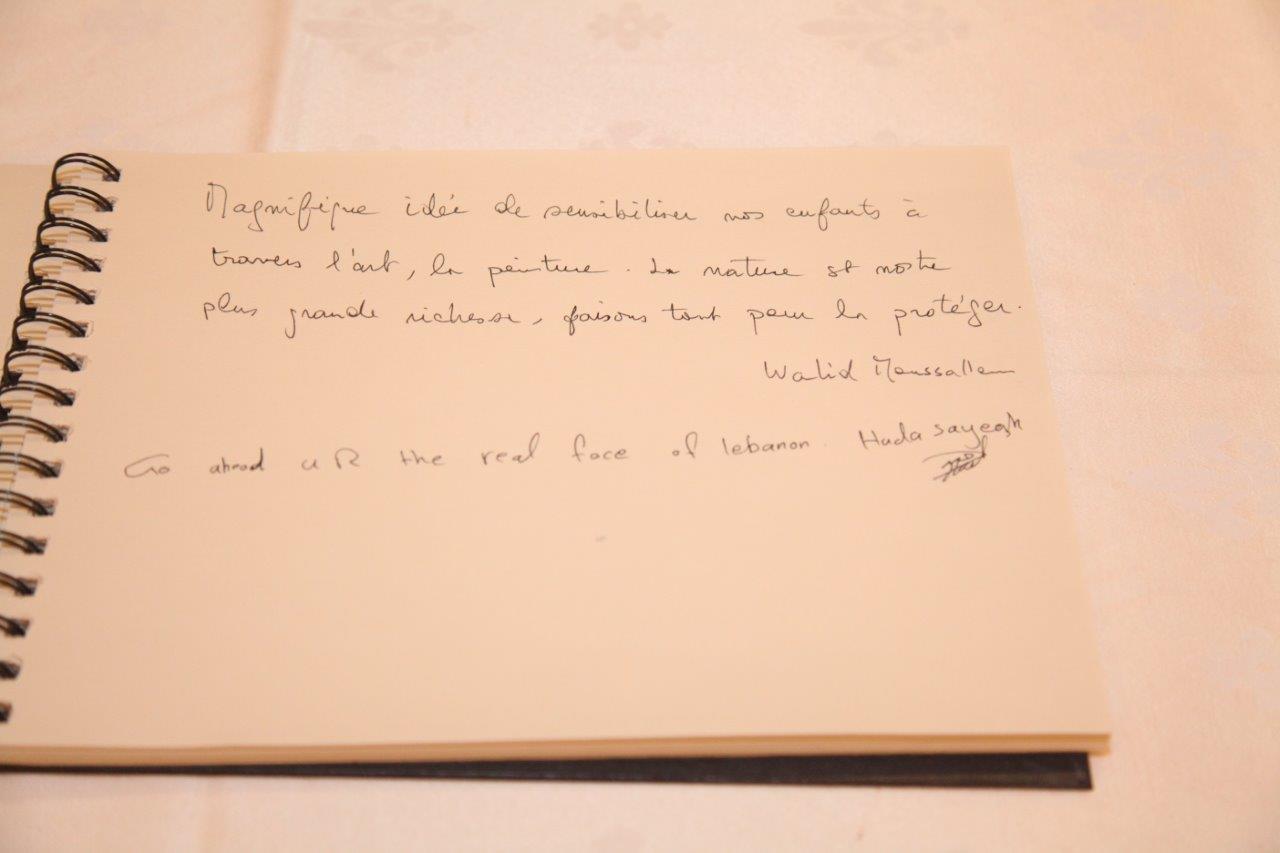 Magnifique idée de sensibiliser nos enfants à
travers l'art, la peinture. La nature est notre
plus grande richesse, faisons tout pour la protéger.
Walid Moussallem
Go ahead u R the real face of lebanon. Huda Sayegh